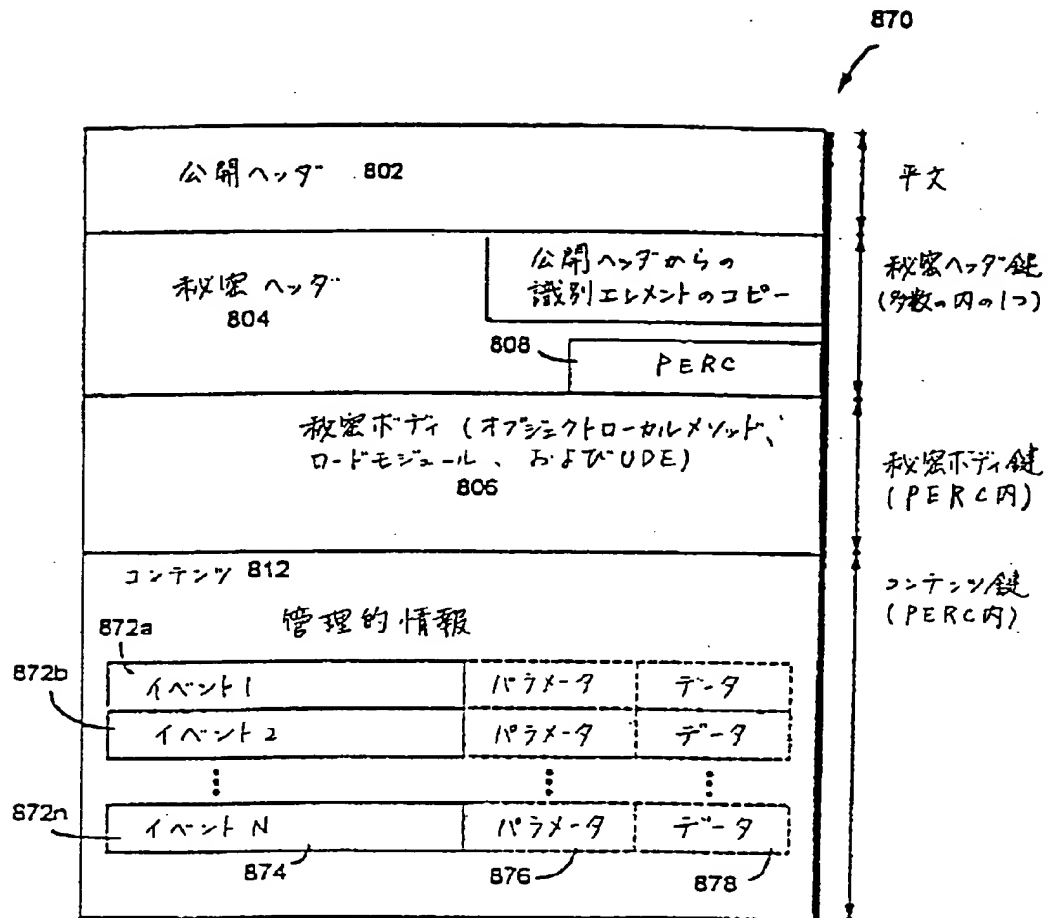 870
公開ヘッダ 802
平文
秘密ヘッダ
804
公開ヘッダからの
識別エレメントのコピー
808
PERC
秘密ヘッダ鍵
(多数の内の1つ)
秘密ボディ (オブジェクトローカルメソッド、
ロードモジュール、およびUDE)
806
秘密ボディ鍵
(PERC内)
コンテンツ 812
管理的情報
コンテンツ鍵
(PERC内)
872a
イベント1 パラメータ データ
872b
イベント2 パラメータ データ
872n
イベントN パラメータ データ
874
876
878